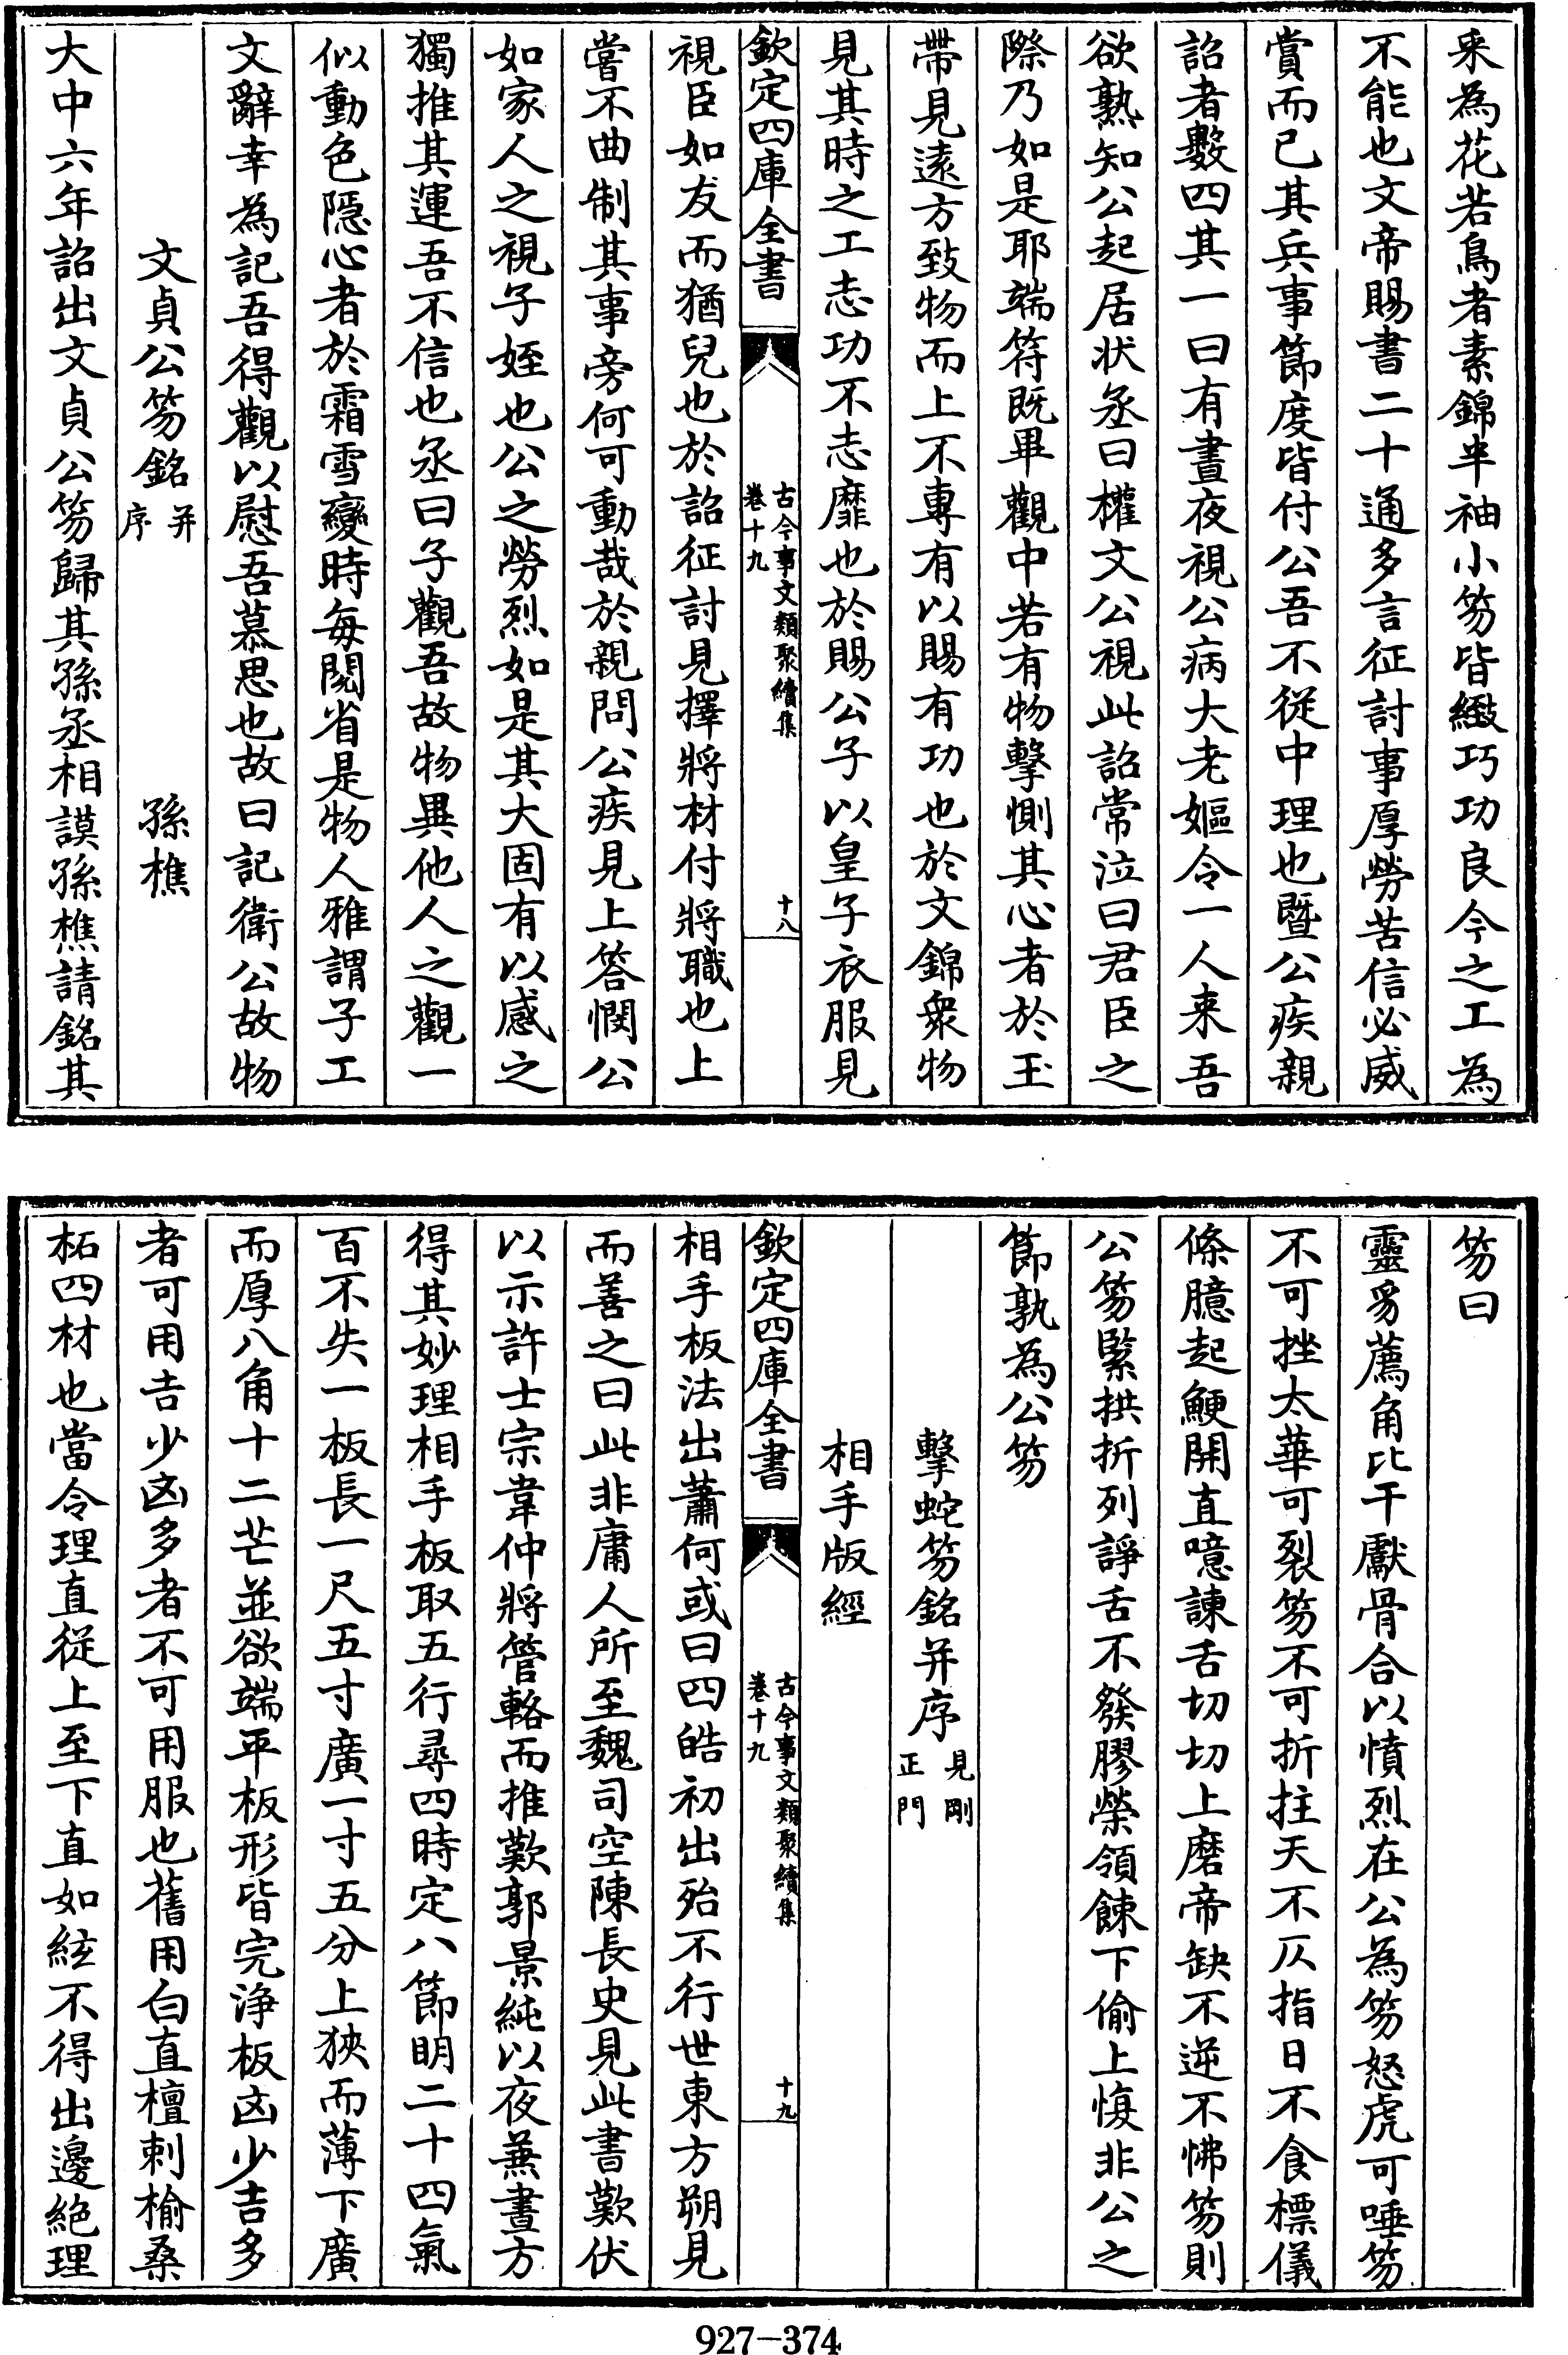 采為花若鳥者素錦半袖小笏皆緻巧功良今之工為
不能也文帝賜書二十通多言征討事厚勞苦信必威
賞而已其兵事節度皆付公吾不從中理也暨公疾親
詔者數四其一曰有晝夜視公病大老嫗令一人来吾
欲熟知公起居状丞曰權文公視此詔常泣曰君臣之
際乃如是耶端符既畢觀中若有物擊惻其心者於玉
帶見逺方致物而上不專有以賜有功也於文錦衆物
見其時之工志功不志靡也於賜公子以皇子衣服見
欽定四庫全書
古今事文類聚續集
卷十九
十八
視臣如友而猶兒也於詔征討見擇將材付將職也上
嘗不曲制其事旁何可動哉於親問公疾見上答憫公
如家人之視子姪也公之勞烈如是其大固有以感之
獨推其運吾不信也丞曰子觀吾故物異他人之觀一
似動色隠心者於霜雪變時每閱省是物人雅謂子工
文辭幸為記吾得觀以慰吾慕思也故曰記衛公故物
文貞公笏銘并序
孫樵
大中六年詔出文貞公笏歸其孫丞相謨孫樵請銘其
笏曰
靈豸薦角比干獻骨合以憤烈在公為笏怒虎可唾笏
不可挫太華可裂笏不可折拄天不仄指日不食標儀
條臆起鯁開直噫諫舌切切上磨帝缺不逆不怫笏則
公笏緊拱折列諍舌不發膠榮領餗下偷上悔非公之
節孰為公笏
擊蛇笏銘并序見剛正門
相手版經
欽定四庫全書
古今事文類聚續集
卷十九
十九
相手板法出蕭何或曰四皓初出殆不行世東方朔見
而善之曰此非庸人所至魏司空陳長史見此書歎伏
以示許士宗韋仲將管輅而推歎郭景純以夜兼晝方
得其妙理相手板取五行尋四時定八節明二十四氣
百不失一板長一尺五寸廣一寸五分上狹而薄下廣
而厚八角十二芒並欲端平板形皆完浄板凶少吉多
者可用吉少凶多者不可用服也舊用白直檀刺榆桑
柘四材也當令理直從上至下直如絃不得出邊絶理
927-374